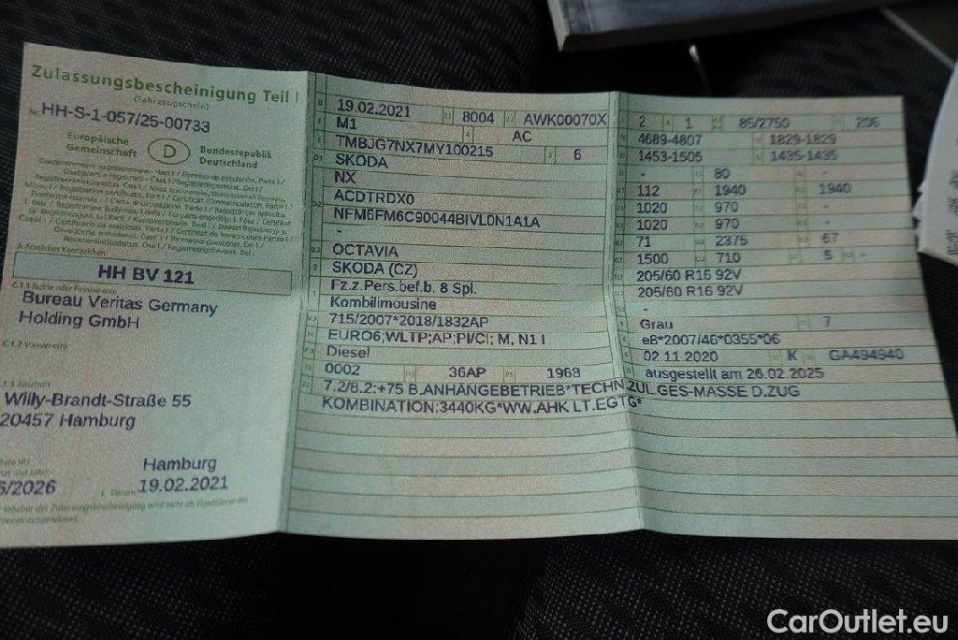 Zulassungsbescheinigung Teil I
(Fahrzeugschein)
HH-S-1-057/25-00733
Europäische
Gemeinschaft
D
Bundesrepublik
Deutschland
HH BV 121
Bureau Veritas Germany
Holding GmbH
Willy-Brandt-Straße 55
20457 Hamburg
Hamburg
/2026 19.02.2021
19.02.2021 8004 AWK00070X
M1 AC
TMBJG7NX7MY100215 6
SKODA
NX
ACDTRDX0
NFM6FM6C90044BIVL0N1A1A
-
OCTAVIA
SKODA (CZ)
Fz.z.Pers.bef.b. 8 Spl.
Kombilimousine
715/2007*2018/1832AP
EURO6;WLTP;AP;PI/CI; M, N1 I
Diesel
0002 36AP 1968
7.2/8.2:+75 B.ANHÄNGEBETRIEB*TECHN ZUL.GES-MASSE D.ZUG
KOMBINATION:3440KG*WW.AHK LT.EGTG*
2 1 85/2750 206
4689-4807 1829-1829
1453-1505 1435-1435
- 80 -
112 1940 1940
1020 970 -
1020 970 -
71 2375 67
1500 710 5 -
205/60 R16 92V
205/60 R16 92V
-
Grau 7
e8*2007/46*0355*06
02.11.2020 K GA494940
ausgestellt am 26.02.2025
CarOutlet.eu